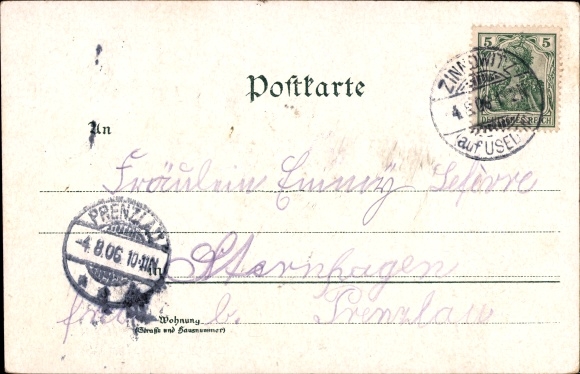 5 5
DEUTSCHES REICH
ZINNOWITZ
4.8.06
(auf USED
Postkarte
An
Fräulein Lefèvre
PRENZLAU
-4.8.06. 10-11N
in Sternhagen
b. Prenzlau
Wohnung
(Straße und Hausnummer)